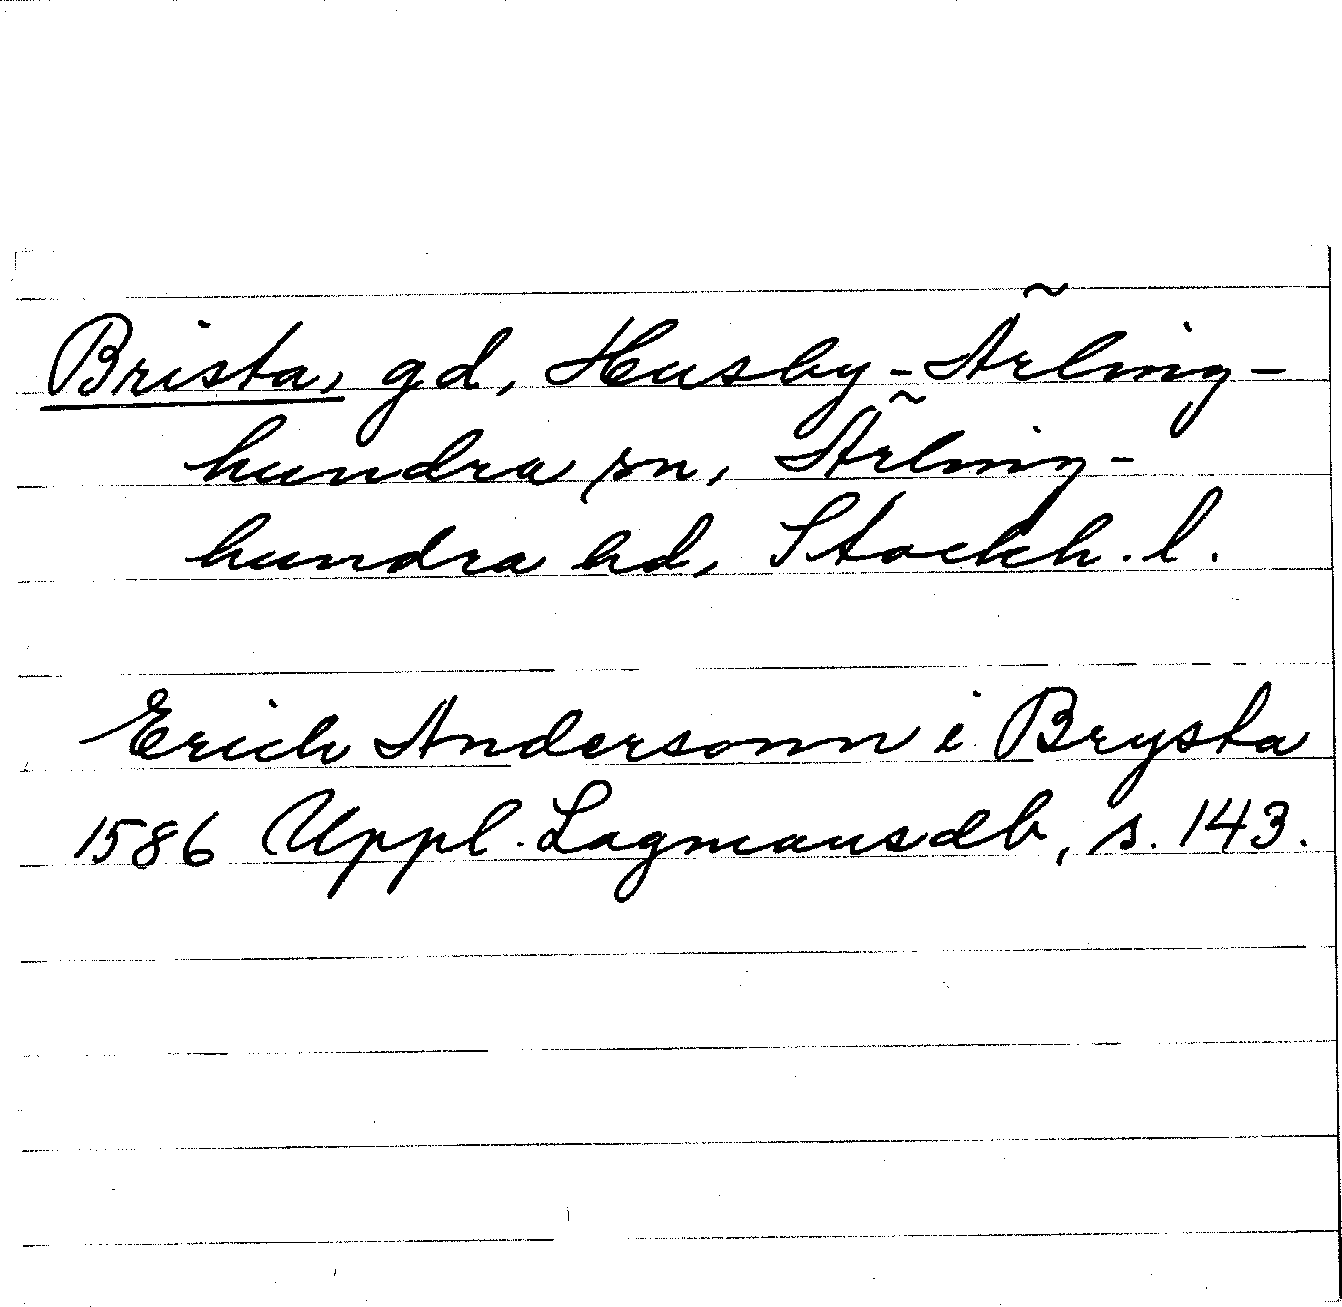 Brista, gd, Husby-Ärling-
hundra sn, Ärling-
hundra hd, Stockh. l.
Erich Andersonn i Brysta
1586 Uppl. Lagmansdb, s. 143.